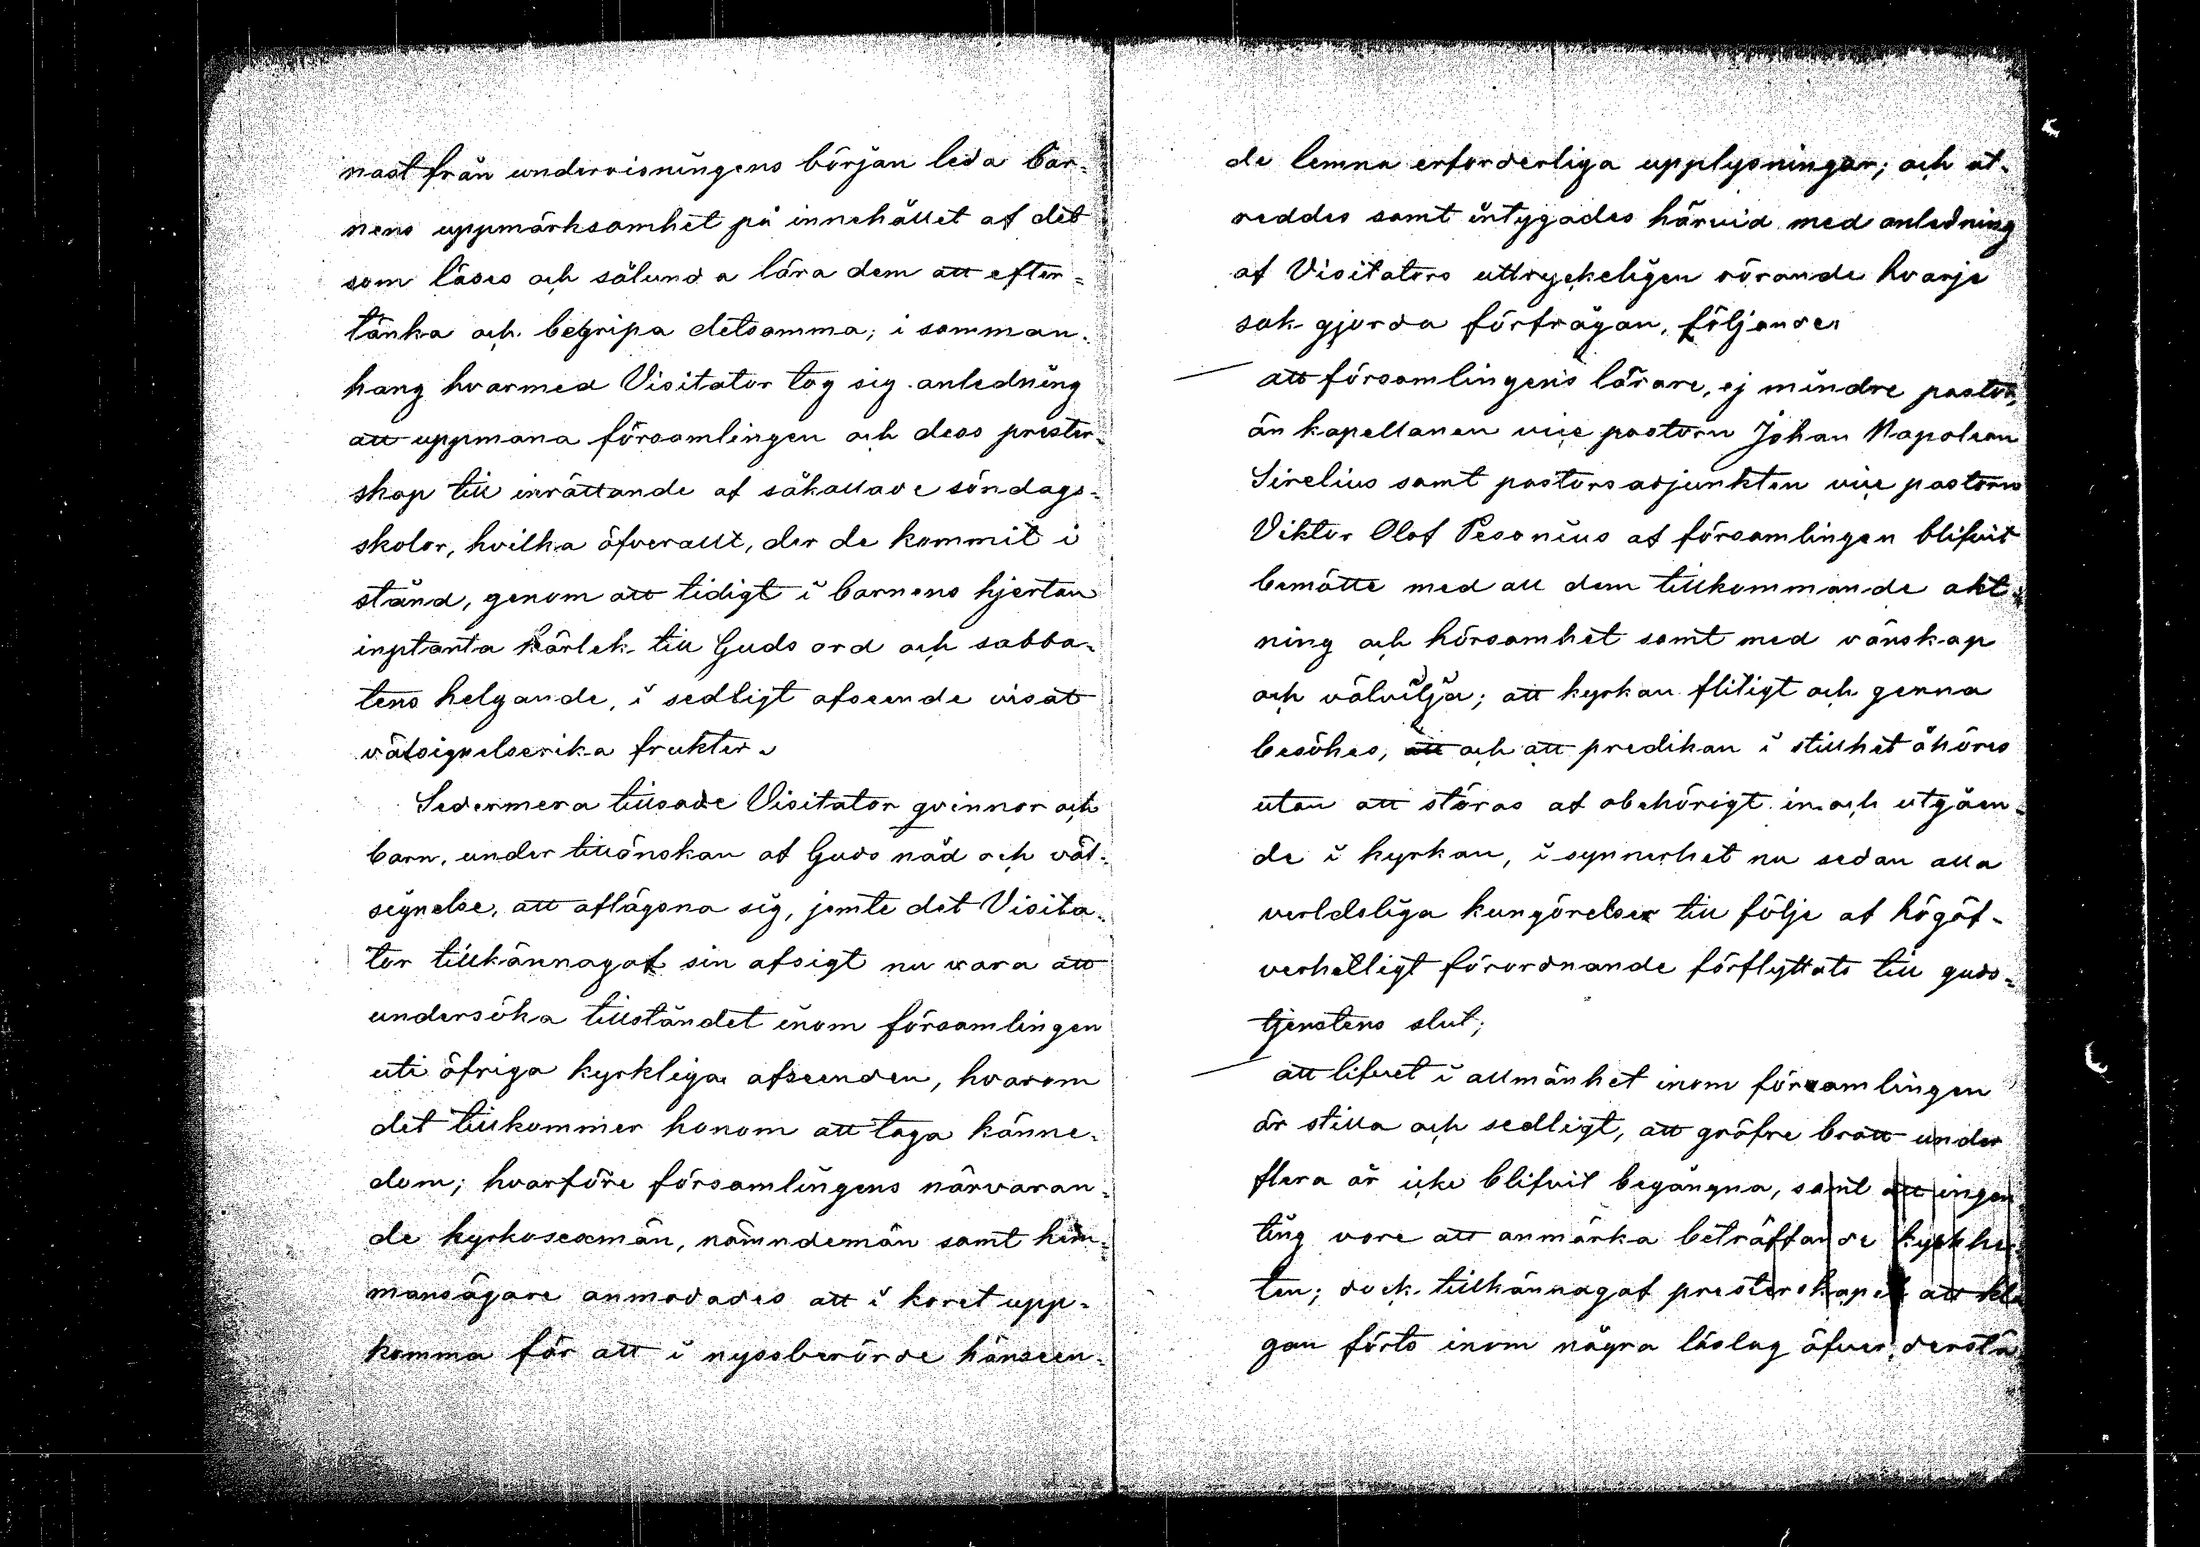 nast från undervisningens början leda bar-
nens uppmärksamhet på innehållet af det
som läses och sålunda lära dem att efter-
tänka och begripa detsamma; i samman-
hang hvarmed Visitator tog sig anledning
att uppmana församlingen och dess prester-
skap till inrättande af såkallade söndags-
skolor, hvilka öfverallt, der de kommit i
stånd, genom att tidigt i barnens hjertan
inplanta kärlek till Guds ord och sabba-
tens helgande, i sedligt afseende visat
välsignelserika frukter.
Sedermera tillsade Visitator qvinnor och
barn, under tillönskan af Guds nåd och väl-
signelse, att aflägsna sig, jemte det Visita-
tor tillkännagaf sin afsigt nu vara att
undersöka tillståndet inom församlingen
uti öfriga kyrkliga afseenden, hvarom
det tillkommer honom att taga känne-
dom; hvarföre församlingens närvaran-
de kyrkosexmän, nämndemän samt hem-
mansägare anmodades att i koret upp-
komma för att i nyssberörde hänseen-
de lemna erforderliga upplysningar; och ut-
reddes samt intygades härvid med anledning
af Visitators uttryckeligen rörande hvarje
sak gjorda förfrågan, följande:
att församlingens lärare, ej mindre pastor,
än kapellanen vice pastorn Johan Napoleon
Sirelius samt pastorsadjunkten vice pastorn
Viktor Olof Pesonius af församlingen blifvit
bemötte med all dem tillkommande akt-
ning och hörsamhet samt med vänskap
och välvilja; att kyrkan flitigt och gerna
besökes, att och att predikan i stillhet åhöres
utan att störas af obehörigt in och utgåen-
de i kyrkan, i synnerhet nu sedan alla
verldsliga kungörelser till följe af högöf-
verhetligt förordnande förflyttats till guds-
tjenstens slut;
att lifvet i allmänhet inom församlingen
är stilla och sedligt, att gröfre brott under
flera år icke blifvit begångna, samt att ingen
ting vore att anmärka beträffande kyskhe-
ten; dock tillkännagaf presterskapet att kla
gan förts inom några läslag öfver derstä